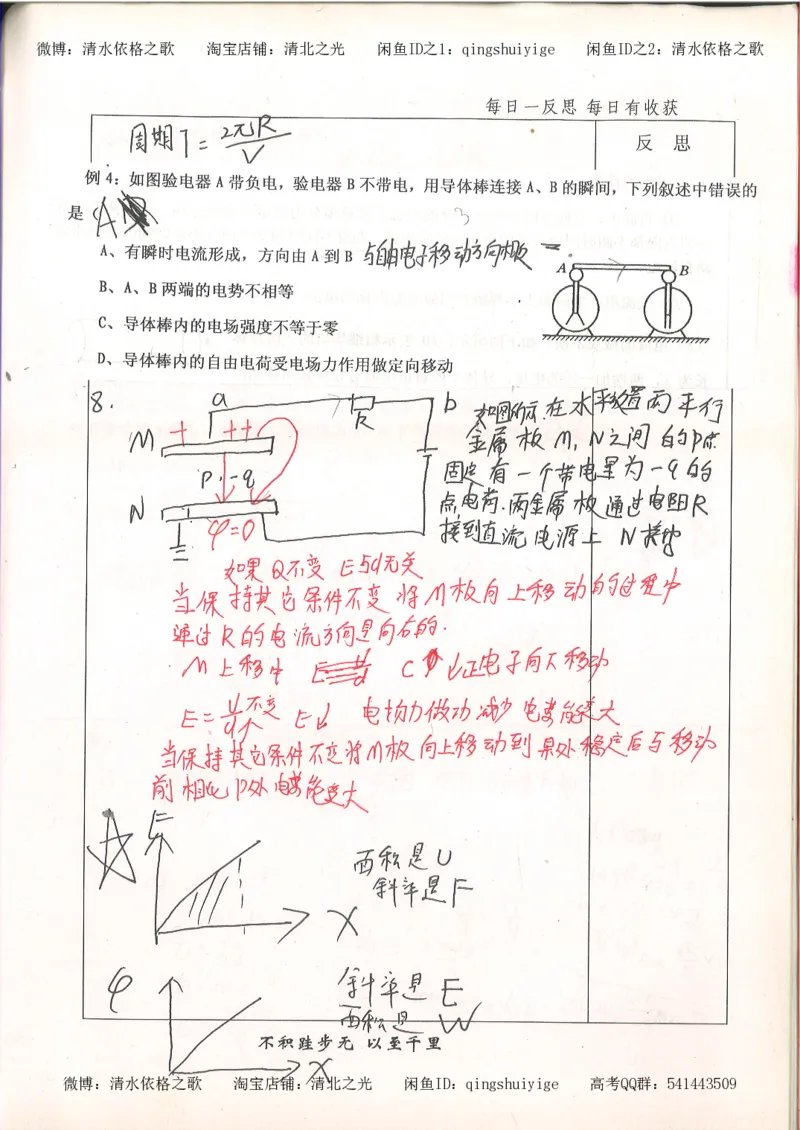 微博：清水依格之歌 淘宝店铺：清北之光 闲鱼ID之1：qingshuiyige 闲鱼ID之2：清水依格之歌
每日一反思 每日有收获
周期T=2πR/V
反 思
例 4：如图验电器 A 带负电，验电器 B 不带电，用导体棒连接 A、B 的瞬间，下列叙述中错误的
是（A
3
A、有瞬时电流形成，方向由 A 到 B 与自由电子移动方向相反
A B
B、A、B 两端的电势不相等
C、导体棒内的电场强度不等于零
D、导体棒内的自由电荷受电场力作用做定向移动
8.
a R b
M + ++
P·-q
N φ=0
如图所示.在水平放置两平行
金属板M,N之间的P点
固定有一个带电量为-q的
点电荷.两金属板通过电阻R
接到直流电源上 N接地
如果Q不变 E与d无关
当保持其它条件不变 将M板向上移动的过程中
通过R的电流方向是向右的.
M上移中 C ↓正电子向下移动
E=U不变/d↑ E↓ 电场力做功减少 电势能变大
当保持其它条件不变将M板向上移动到某处稳定后与移动
前相比P处电势能变大
E
面积是U
斜率是F
X
φ
斜率是E
面积是W
不积跬步无 以至千里
X
微博：清水依格之歌 淘宝店铺：清北之光 闲鱼ID：qingshuiyige 高考QQ群：541443509